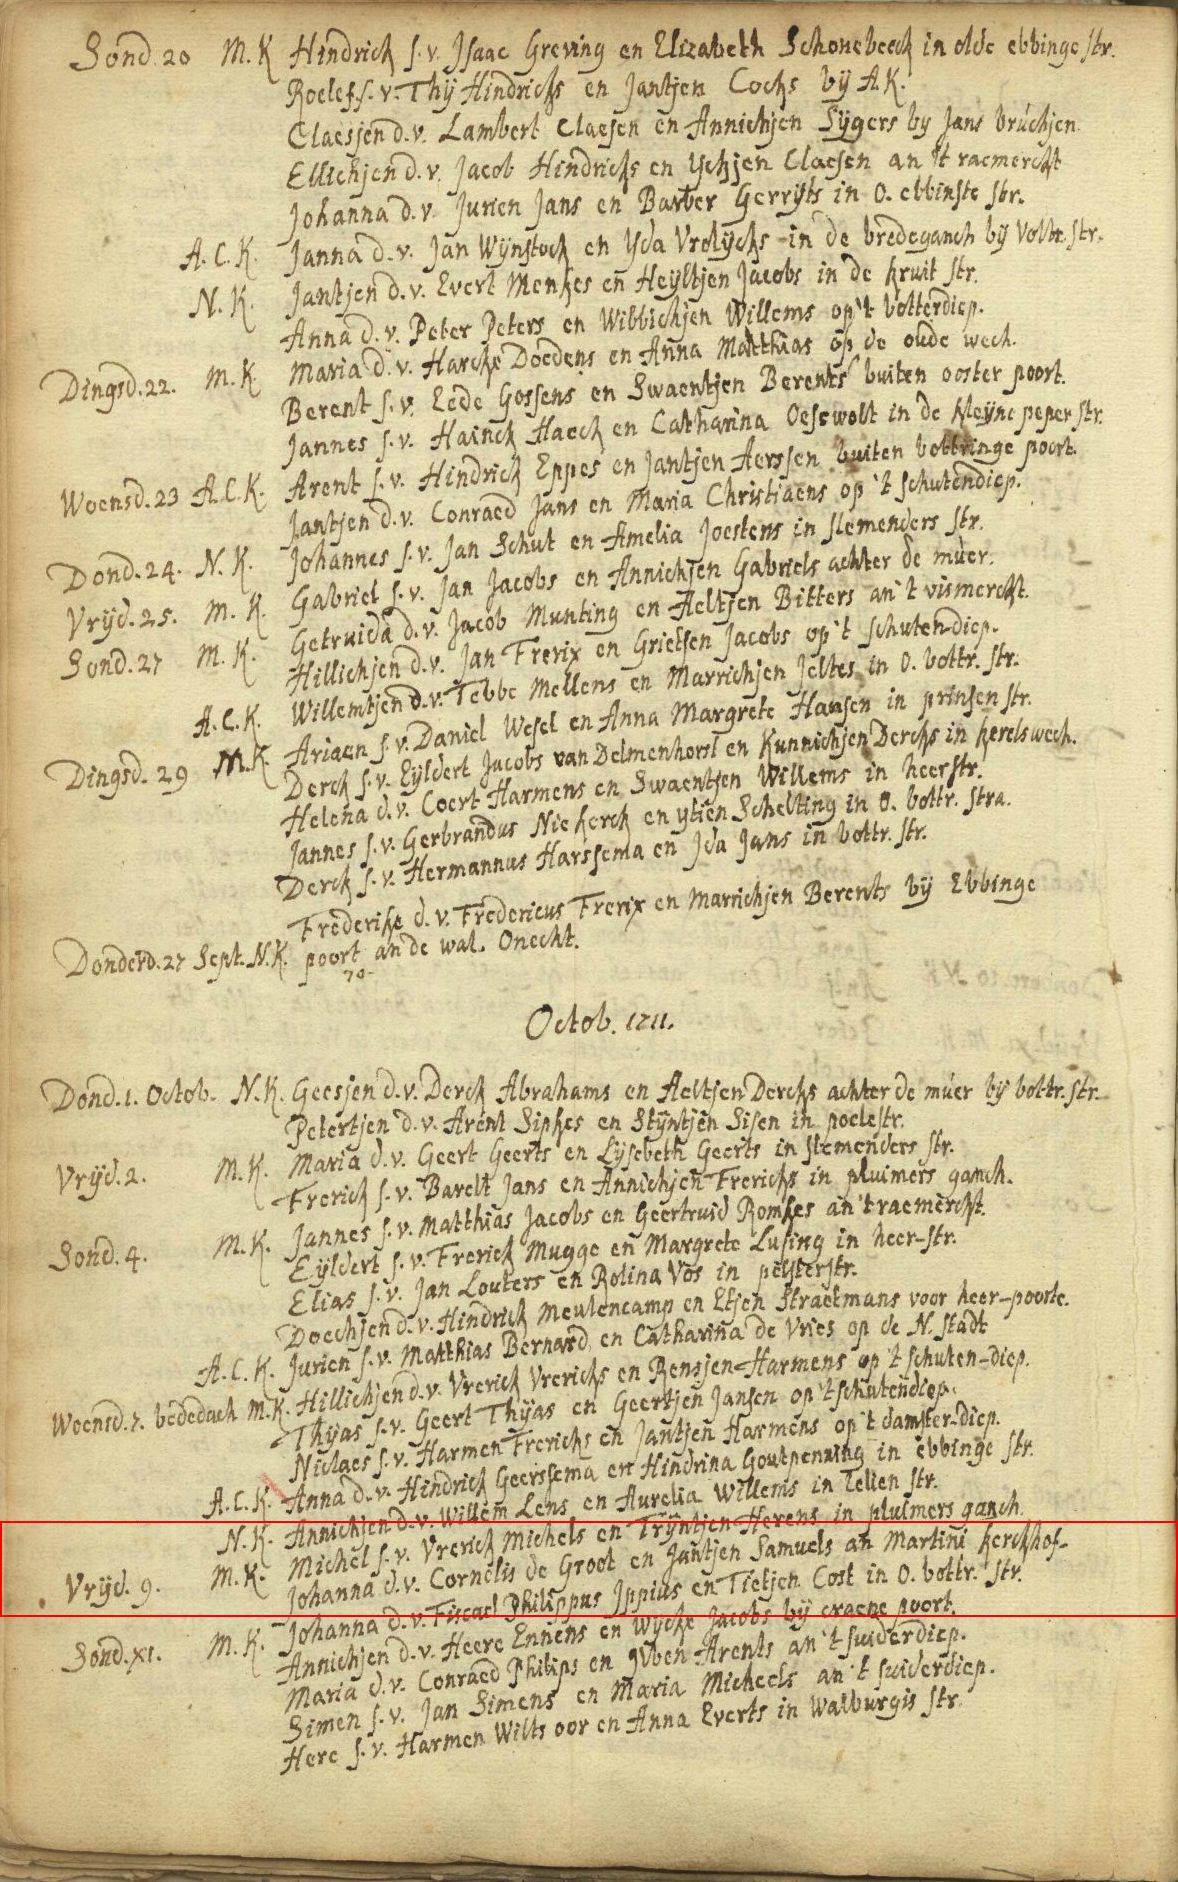 Sond. 20 M. K Hindrick s. v. Isaac Greving en Elizabeth Schonebeeck in olde ebbinge str.
Roelef s. v. Thij Hindricks en Jantjen Cocks bij A. K.
Claesjen d. v. Lambert Claesen en Annichjen Sijgers by Jans bruchjen
Ellichjen d. v. Jacob Hindricks en Ychjen Claesen an 't raemerckt
Johanna d. v. Jurien Jans en Barber Gerryts in O. ebbinste str.
A. C. K. Janna d. v. Jan Wynstock en Yda Vrolycks in de bredeganch bij Volhr. str.
N. K. Jantjen d. v. Evert Menkes en Heyltjen Jacobs in de kruit str.
Anna d. v. Peter Peters en Wibbichjen Willems op 't botterdiep.
Dingsd. 22. M. K Maria d. v. Harcke Doedens en Anna Matthias op de oude wech.
Berent s. v. Eede Gossens en Swaentjen Berents buiten ooster poort.
Jannes s. v. Hainck Haeck en Catharina Oesswolt in de kleyne peper str.
Woensd. 23 A. C. K. Arent s. v. Hindrick Eppes en Jantjen Aerssen buiten bottringe poort.
Jantjen d. v. Conraed Jans en Maria Christiaens op 't schutendiep.
Dond. 24. N. K. Johannes s. v. Jan Schut en Amelia Joestens in slemenders str.
Vrijd. 25. M. K. Gabriel s. v. Jan Jacobs en Annichjen Gabriels achter de muer.
Getruida d. v. Jacob Munting en Aeltjen Bitters an 't vismerckt.
Sond. 27 M. K. Hillichjen d. v. Jan Frerix en Grietjen Jacobs op 't schuten-diep.
Willemtjen d. v. Tebbe Mellens en Marrichjen Jeltes in O. bottr. str.
A. C. K. Ariaen s. v. Daniel Wesel en Anna Margrete Hansen in prinsen str.
Dingsd. 29 M. K Derck s. v. Eyldert Jacobs van Delmenhorst en Kunnichjen Dercks in kerels wech.
Helena d. v. Coert Harmens en Swaentjen Willems in heer str.
Jannes s. v. Gerbrandus Niekerck en ytien Schelting in O. bottr. stra.
Derck s. v. Hermannus Harssema en Ida Jans in bottr. str.
Frederike d. v. Fredericus Frerix en Marrichjen Berents bij Ebbinge
Donderd. 27 Sept. N. K. poort an de wal. Onecht.
70
Octob. 1711.
Dond. 1. Octob. N. K. Geesjen d. v. Derck Abrahams en Aeltjen Dercks achter de muer bij bottr. str.
Petertjen d. v. Arent Sipkes en Styntjen Sisen in poelestr.
Vrijd. 2. M. K. Maria d. v. Geert Geerts en Lysebeth Geerts in slemenders str.
Frerick s. v. Barelt Jans en Annichjen Frericks in pluimers ganch.
Sond. 4. M. K. Jannes s. v. Matthias Jacobs en Geertruid Romkes an 't raemerckt.
Eyldert s. v. Frerick Mugge en Margrete Lusing in heer-str.
Elias s. v. Jan Louters en Rolina Vos in peysterstr.
Doechjen d. v. Hindrick Meulencamp en Etjen Straetmans voor heer-poorte.
A. C. K. Jurien s. v. Matthias Bernard en Catharina de Vries op de N. stadt
Woensd. 7. bededach M. K. Hillichjen d. v. Vrerick Vrericks en Rensjen Harmens op 't schuten-diep.
Thijas s. v. Geert Thijas en Geertjen Jansen op 't schutendiep.
Niclaes s. v. Harmen Frericks en Jantjen Harmens op 't damster-diep.
A. C. K. Anna d. v. Hindrick Geerssema en Hindrina Goutpenning in ebbinge str.
N. K. Annichjen d. v. Willem Lens en Aurelia Willems in lelien str.
Vrijd. 9. M. K. Michel s. v. Vrerick Michels en Tryntjen Herens in pluimers ganch
Johanna d. v. Cornelis de Groot en Jantjen Samuels an Martini kerckhof-
Johanna d. v. Fiscael Philippus Ippius en Tietjen Cost in O. bottr. str.
Sond. XI. M. K. Annichjen d. v. Heere Ennens en Wycke Jacobs bij craene poort.
Maria d. v. Conraed Philips en Arents an 't suiderdiep.
Simen s. v. Jan Simens en Maria Micheels an 't suiderdiep.
Here s. v. Harmen Wilts oor en Anna Everts in Walburgis str